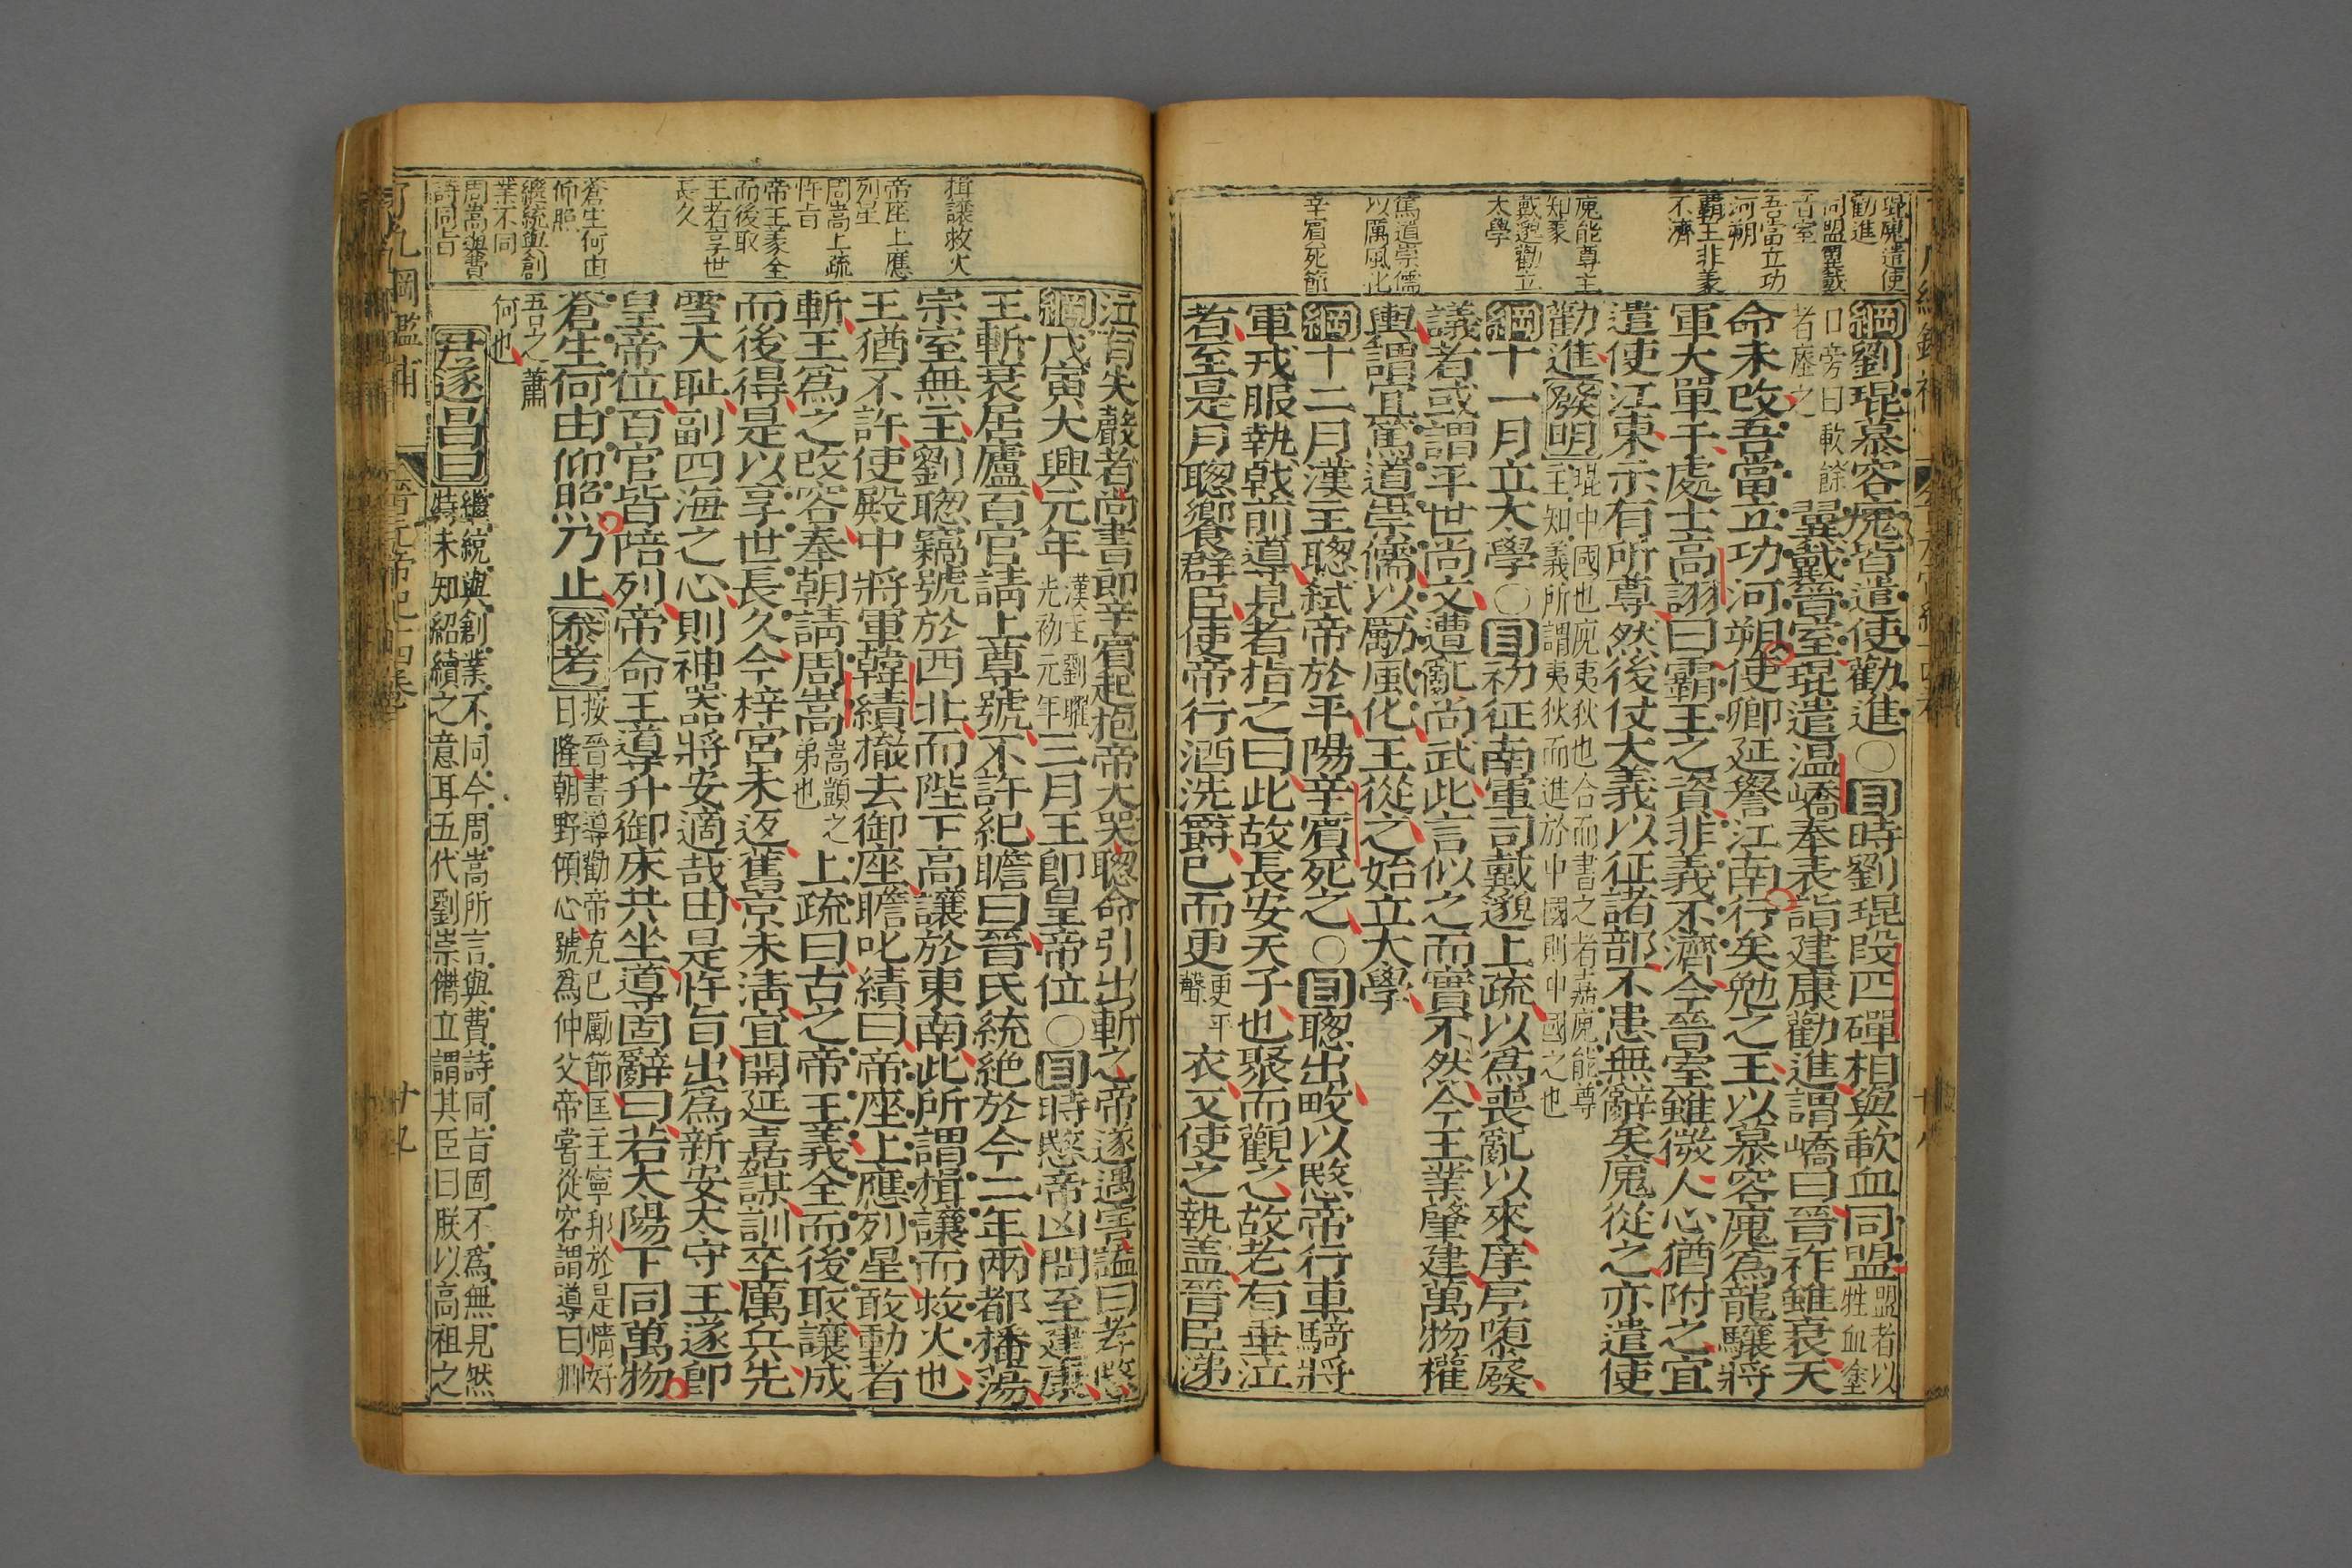 琨廆遣使
勸進
同盟翼戴
晉室
吾當立功
河朔
霸王非義
不濟
廆能尊主
知義
戴邈勸立
太學
篤道崇儒
以厲風化
辛賓死節
綱劉琨慕容廆皆遣使勸進○目時劉琨段匹磾相與歃血同盟盟者以牲血塗
口旁曰歃餘者塵之翼戴晉室琨遣温嶠奉表詣建康勸進謂嶠曰晉祚雖衰天
命未改吾當立功河朔使卿延譽江南行矣勉之王以慕容廆爲龍驤將
軍大單于處士高詡曰霸王之資非義不濟今晉室雖微人心猶附之宜
遣使江東示有所尊然後仗大義以征諸部不患無辭矣廆從之亦遣使
勸進發明琨中國也廆夷狄也合而書之者嘉廆能尊主知義所謂夷狄而進於中國則中國之也
綱十一月立太學○目初征南軍司戴邈上疏以爲喪亂以來庠序隳廢
議者或謂平世尚文遭亂尚武此言似之而實不然今王業肇建萬物權
輿謂宜篤道崇儒以勵風化王從之始立太學
綱十二月漢王聰弒帝於平陽辛賓死之○目聰出畋以愍帝行車騎將
軍戎服執戟前導見者指之曰此故長安天子也聚而觀之故老有垂泣
者至是月聰饗群臣使帝行酒洗爵已而更更平聲衣又使之執盖晉臣涕
揖讓救火
帝座上應
列星
周嵩上疏
忤旨
帝王義全
而後取
王者享世
長久
蒼生何由
仰照
繼統與創
業不同
周嵩與費
詩同旨
泣有失聲者尚書郎辛賓起抱帝大哭聰命引出斬之帝遂遇害謚曰孝愍
綱戊寅大興元年漢主劉曜光初元年三月王卽皇帝位○目時愍帝凶問至建康
王斬衰居廬百官請上尊號不許紀瞻曰晉氏統絶於今二年兩都播蕩
宗室無主劉聰竊號於西北而陛下高讓於東南此所謂揖讓而救火也
王猶不許使殿中將軍韓績撤去御座瞻叱績曰帝座上應列星敢動者
斬王爲之改容奉朝請周嵩嵩顗之弟也上疏曰古之帝王義全而後取讓成
而後得是以享世長久今梓宮未返舊京未清宜開延嘉謀訓卒厲兵先
雪大恥副四海之心則神器將安適哉由是忤旨出爲新安太守王遂卽
皇帝位百官皆陪列帝命王導升御床共坐導固辭曰若太陽下同萬物
蒼生何由仰照乃止叅考按晉書導勸帝克已厲節匡主寧邦於是情好日隆朝野傾心號爲仲父帝嘗從容謂導曰卿
吾之蕭何也
尹遂昌曰繼統與創業不同今周嵩所言與費詩同旨固不爲無見然時未知紹續之意耳五代劉崇僭立謂其臣曰朕以高祖之